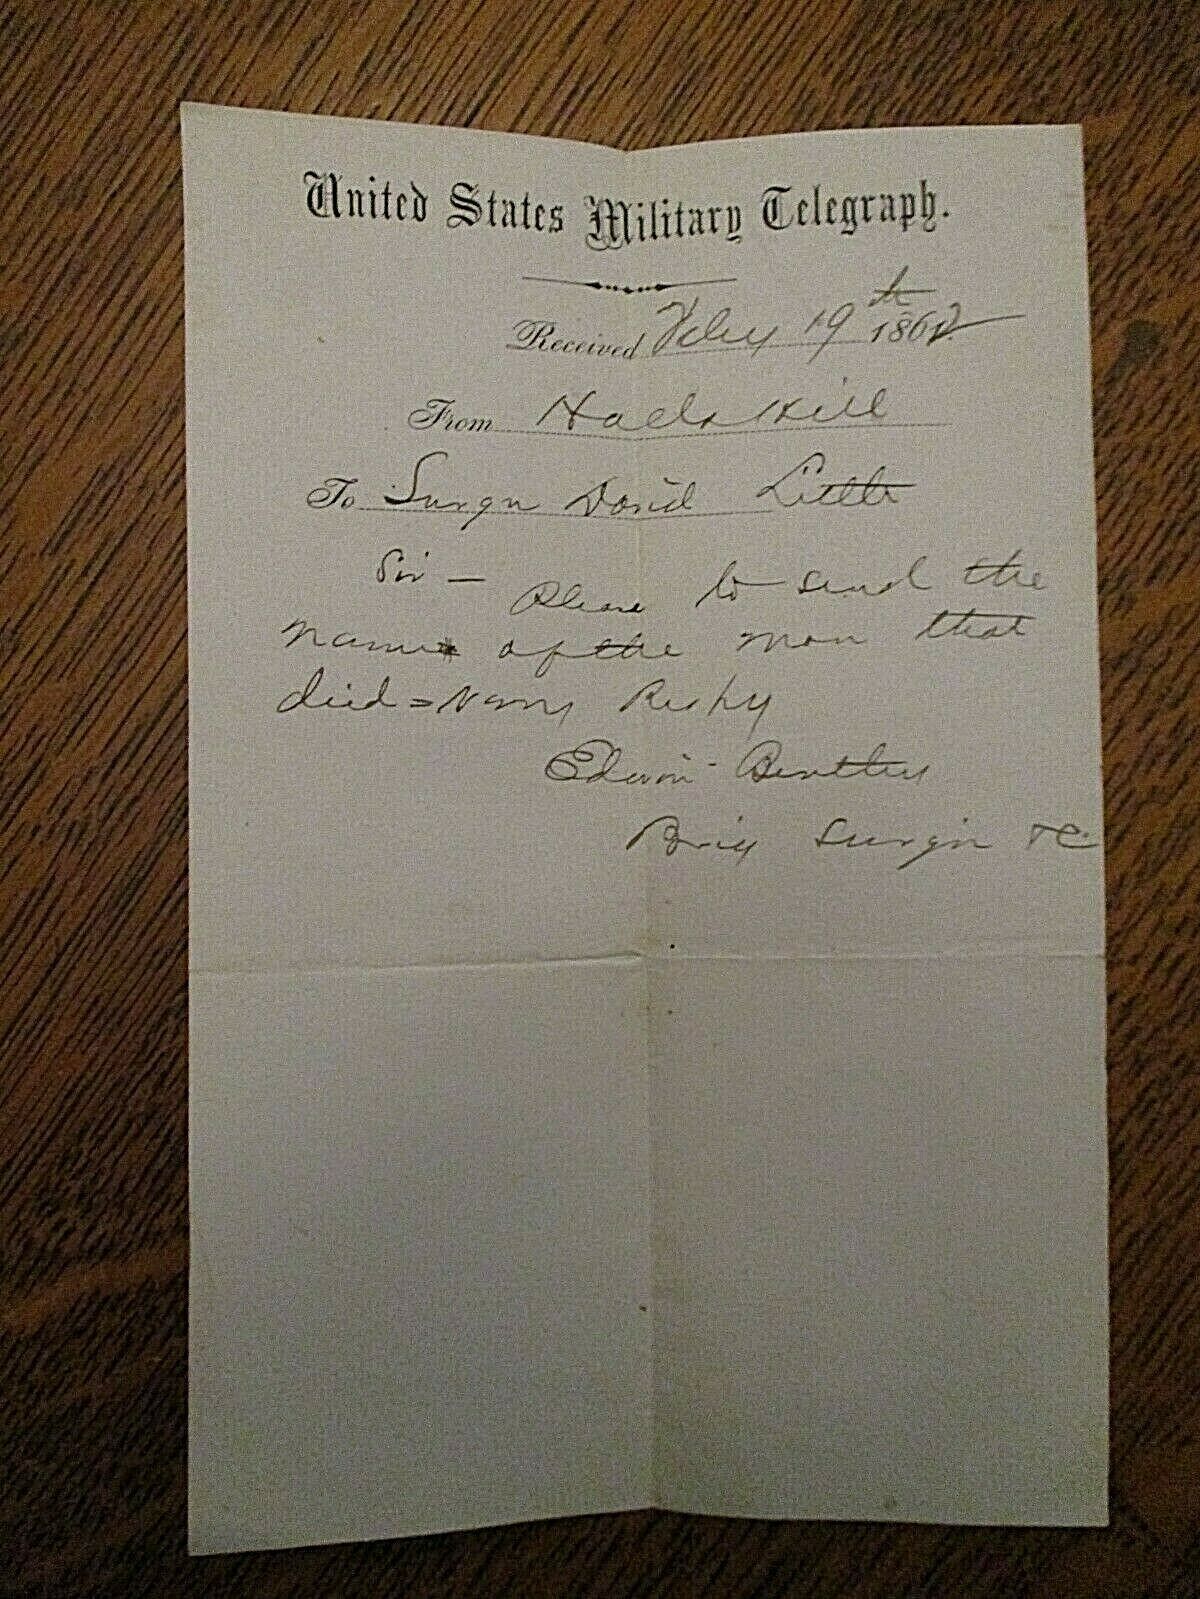 United States Military Telegraph.
Received Feby 19th 1862
From Halls Hill
To Surgn David Little
Sir — Please to send the
name of the man that
died = Very Respy
Edwin Bentley
Brig Surgn &c